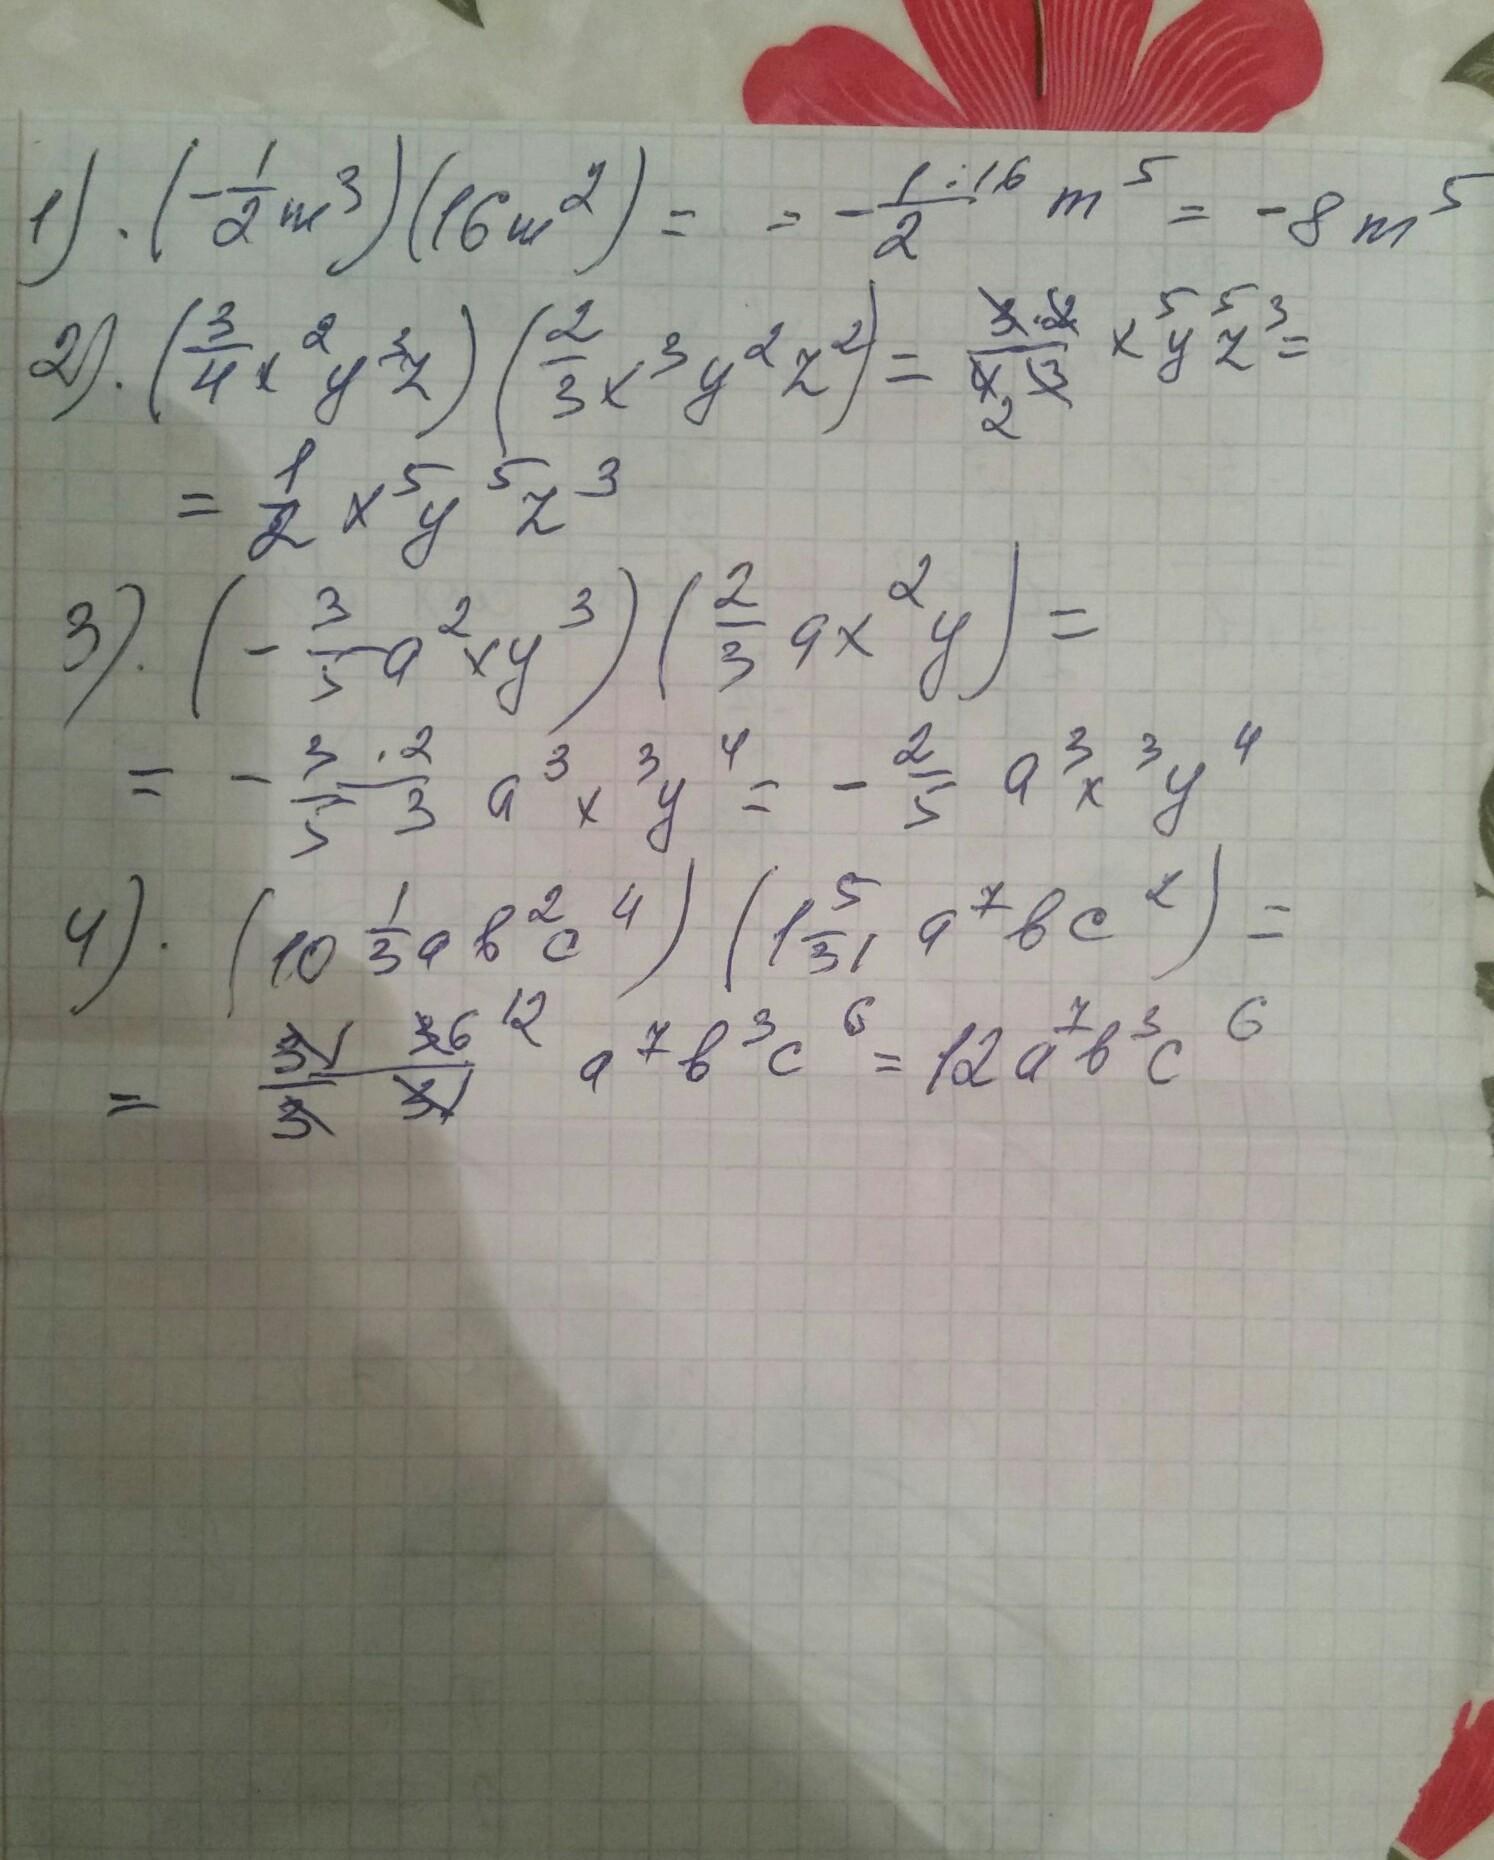 1). (-1/2 m³)(16m²) = = - 1·16/2 m⁵ = -8m⁵
2). (3/4 x²y³z)(2/3 x³y²z²) = 3·2/4 3 2 x⁵y⁵z³ =
= 1/2 x⁵y⁵z³
3). (- 3/5 a²xy³)(2/3 ax²y) =
= - 3·2/5 3 a³x³y⁴ = - 2/5 a³x³y⁴
4). (10 1/3 ab²c⁴)(1 5/31 a⁷bc²) =
= 31 36 12/3 31 a⁷b³c⁶ = 12a⁷b³c⁶